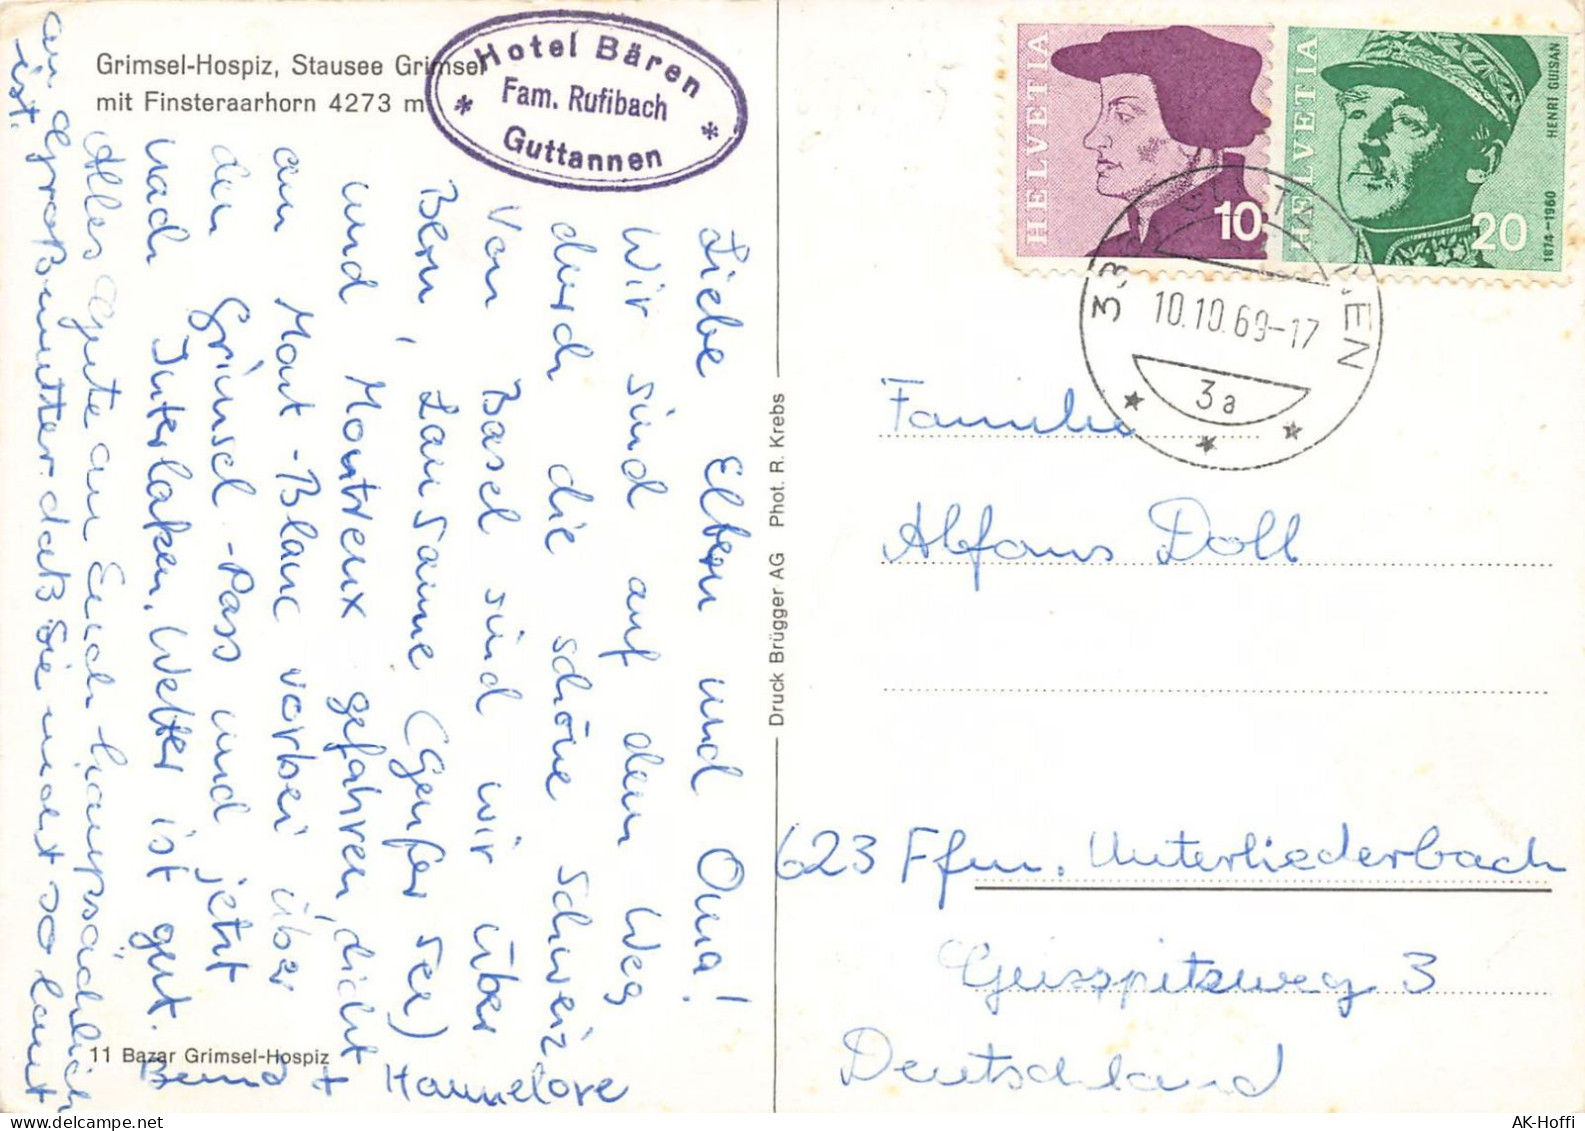 Grimsel-Hospiz, Stausee Grimsel
mit Finsteraarhorn 4273 m
Hotel Bären
Fam. Rufibach
Guttannen
Liebe Eltern und Oma!
Wir sind auf dem Weg
durch die schöne Schweiz
Von Basel sind wir über
Bern, Lausanne (Genfer See)
und Montreux gefahren, dicht
am Mont-Blanc vorbei über
den Grimsel-Pass und jetzt
nach Interlaken. Wetter ist gut.
Alles Gute an Euch hauptsächlich
an Großmutter daß Sie nicht so laut
ist.
Bernd + Hannelore
11 Bazar Grimsel-Hospiz
Druck Brügger AG Phot. R. Krebs
HELVETIA
10
HELVETIA
20
HENRI GUISAN
1874-1960
10.10.69-17
3a
Familie
Alfons Doll
623 Ffm. Unterliederbach
Geisspitzweg 3
Deutschland
AK-Hoffi